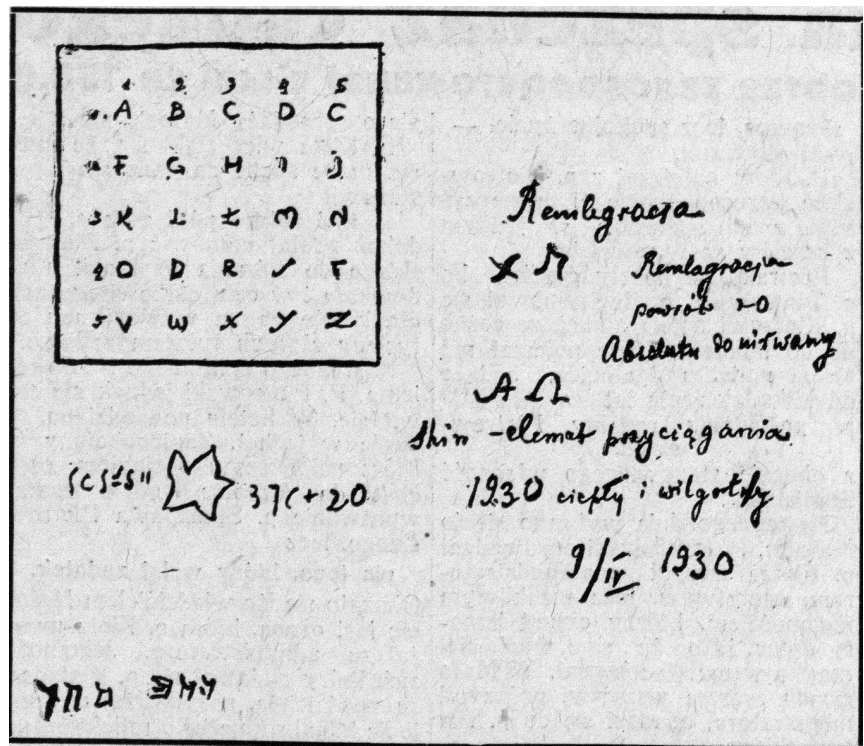 1 2 3 4 5
1. A B C D C
2 F G H I J
3 K L Ł M N
4 O D R S T
5 V W X Y Z
Remlegracja
Remlagracja
powrót do
Absolutu do nirwany
A Ω
Shin - elemat przyciągania
1930 ciepły i wilgotny
37C+20
9/IV 1930